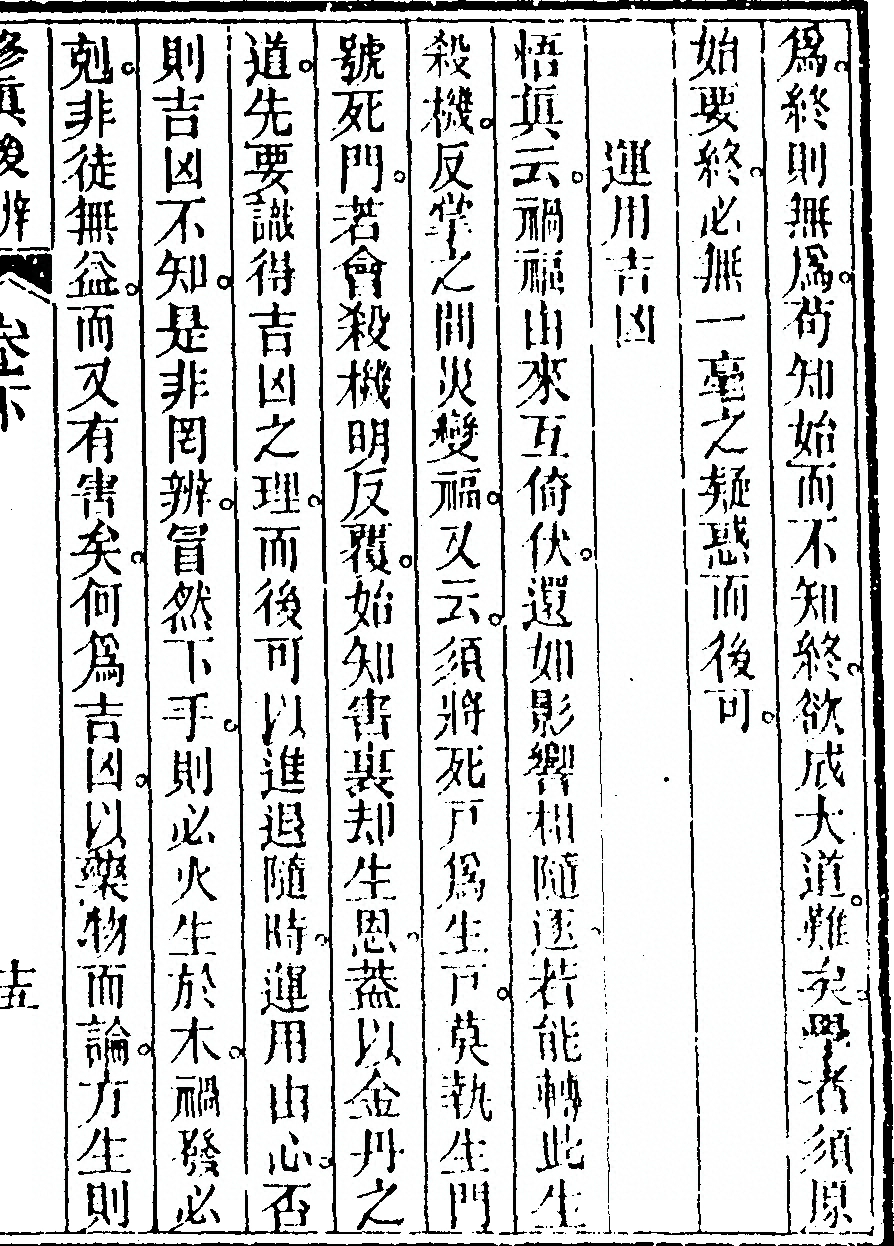 爲。終則無爲。苟知始而不知終。欲成大道。難矣。學者須原
始要終。必無一毫之疑惑而後可。
運用吉凶
悟眞云。禍福由來互倚伏。還如影響相隨逐。若能轉此生
殺機。反掌之間災變福。又云。須將死戸爲生戸。莫執生門
號死門。若會殺機明反覆。始知害裏却生恩。蓋以金丹之
道。先要識得吉凶之理。而後可以進退隨時。運用由心。否
則吉凶不知。是非罔辨。冒然下手。則必火生於木。禍發必
剋。非徒無益。而又有害矣。何爲吉凶。以藥物而論。方生則
修眞後辨 卷下 十五